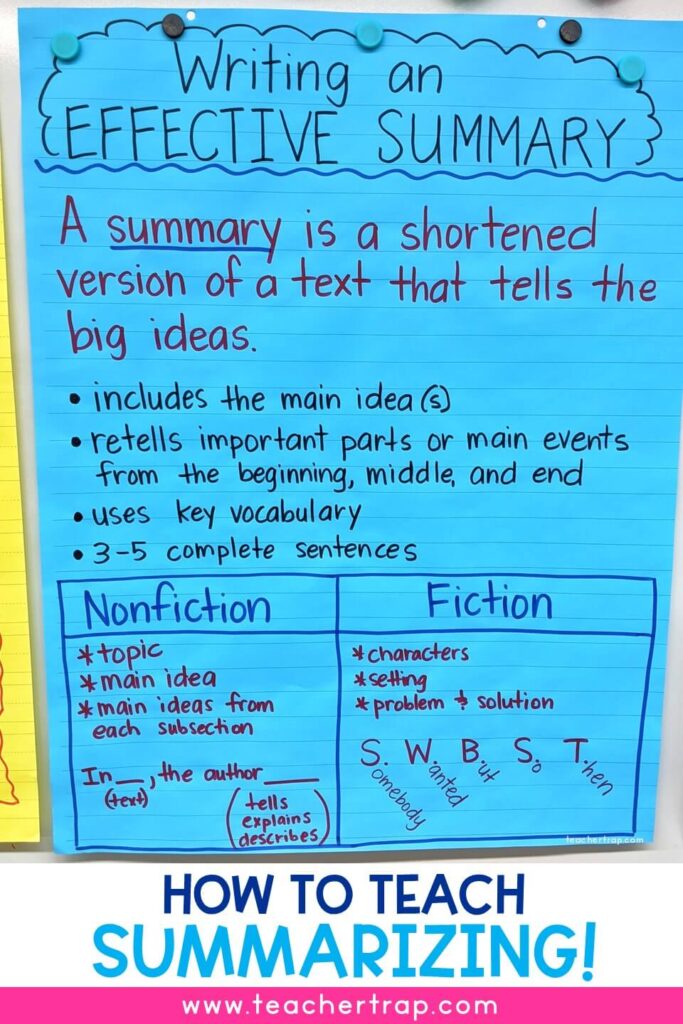 Writing an
EFFECTIVE SUMMARY
A summary is a shortened
version of a text that tells the
big ideas.
• includes the main idea(s)
• retells important parts or main events
from the beginning, middle, and end
• uses key vocabulary
• 3-5 complete sentences
Nonfiction
*topic
*main idea
*main ideas from
each subsection
In__, the author____
(text)
(tells
explains
describes)
Fiction
*characters
*setting
*problem & solution
S. W. B. S. T.
omebody anted ut o hen
teachertrap.com
HOW TO TEACH
SUMMARIZING!
www.teachertrap.com